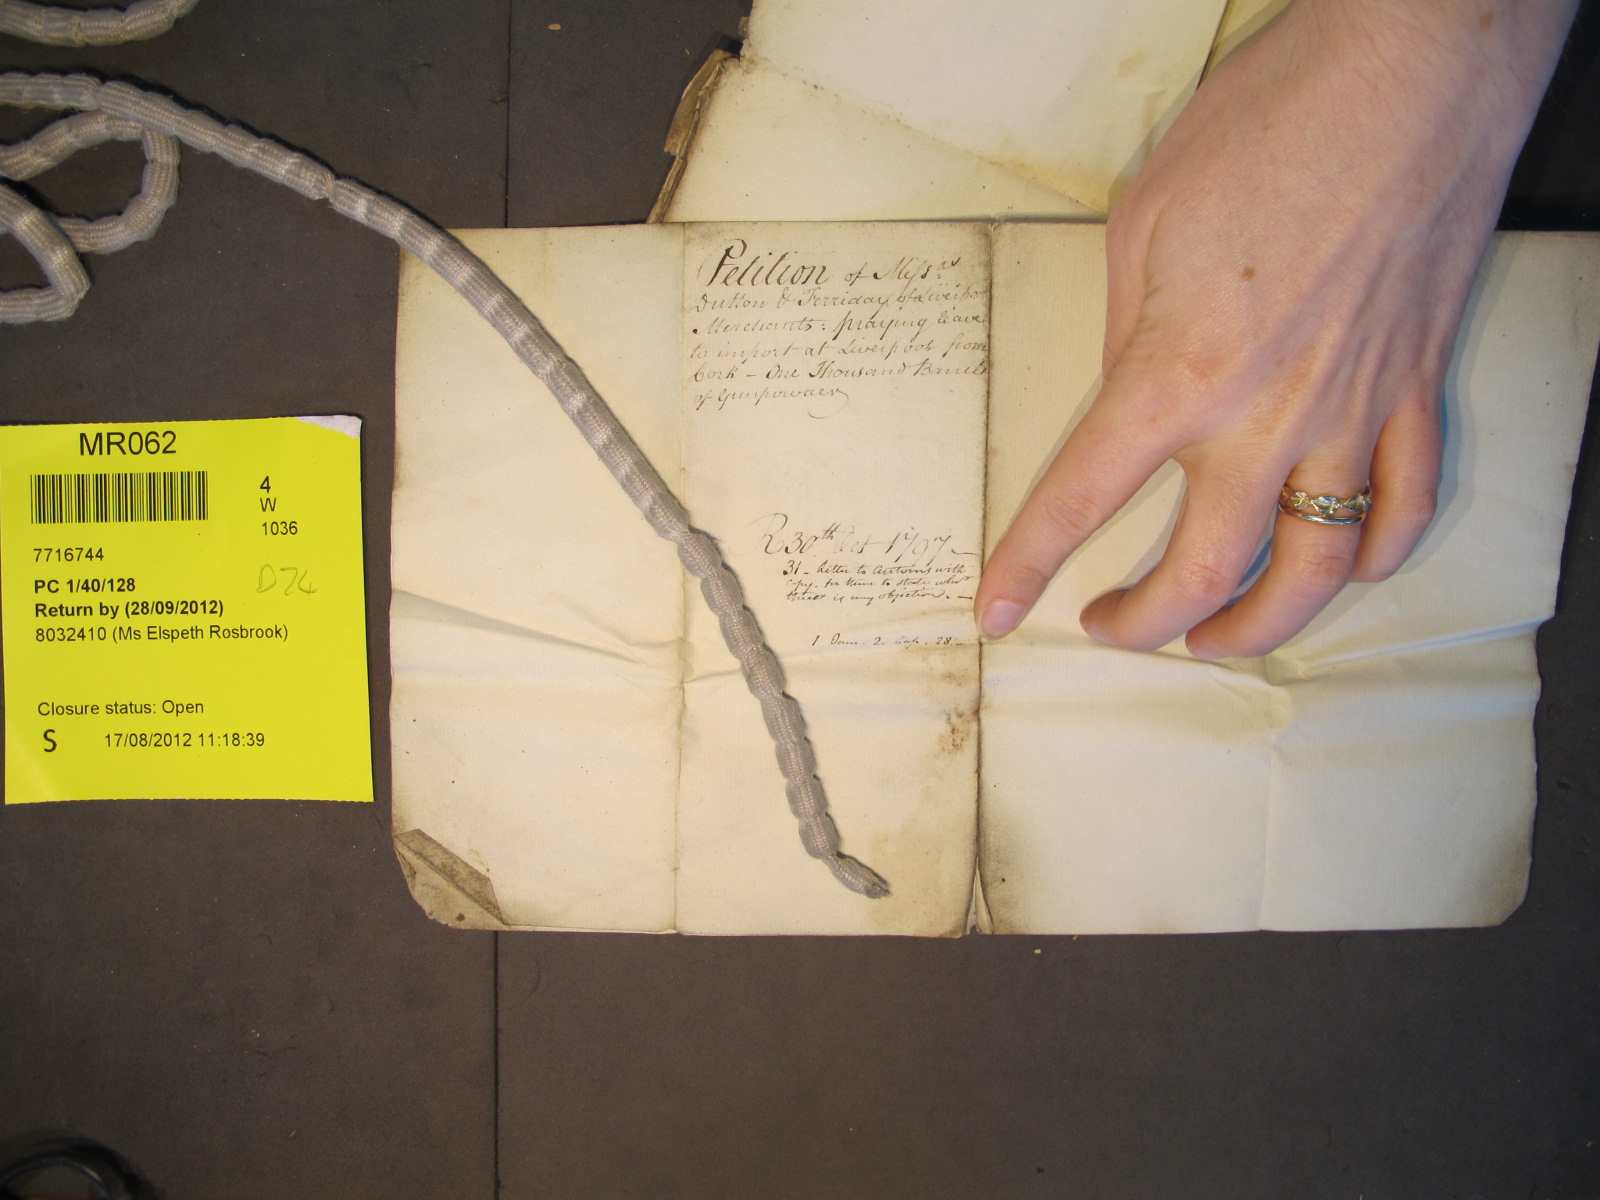 MR062
4
W
1036
7716744
D74
PC 1/40/128
Return by (28/09/2012)
8032410 (Ms Elspeth Rosbrook)
Closure status: Open
S 17/08/2012 11:18:39
Petition of Mess.rs
Dutton & Ferriday of Liverpool
Merchants: praying leave
to import at Liverpool from
Cork – One Thousand Barrels
of Gunpowder
R 30th Oct 1797 –
31 – Letter to Customs with
copy. for them to state what
there is any objection. –
1 Jam. 2. Cap. 28 –